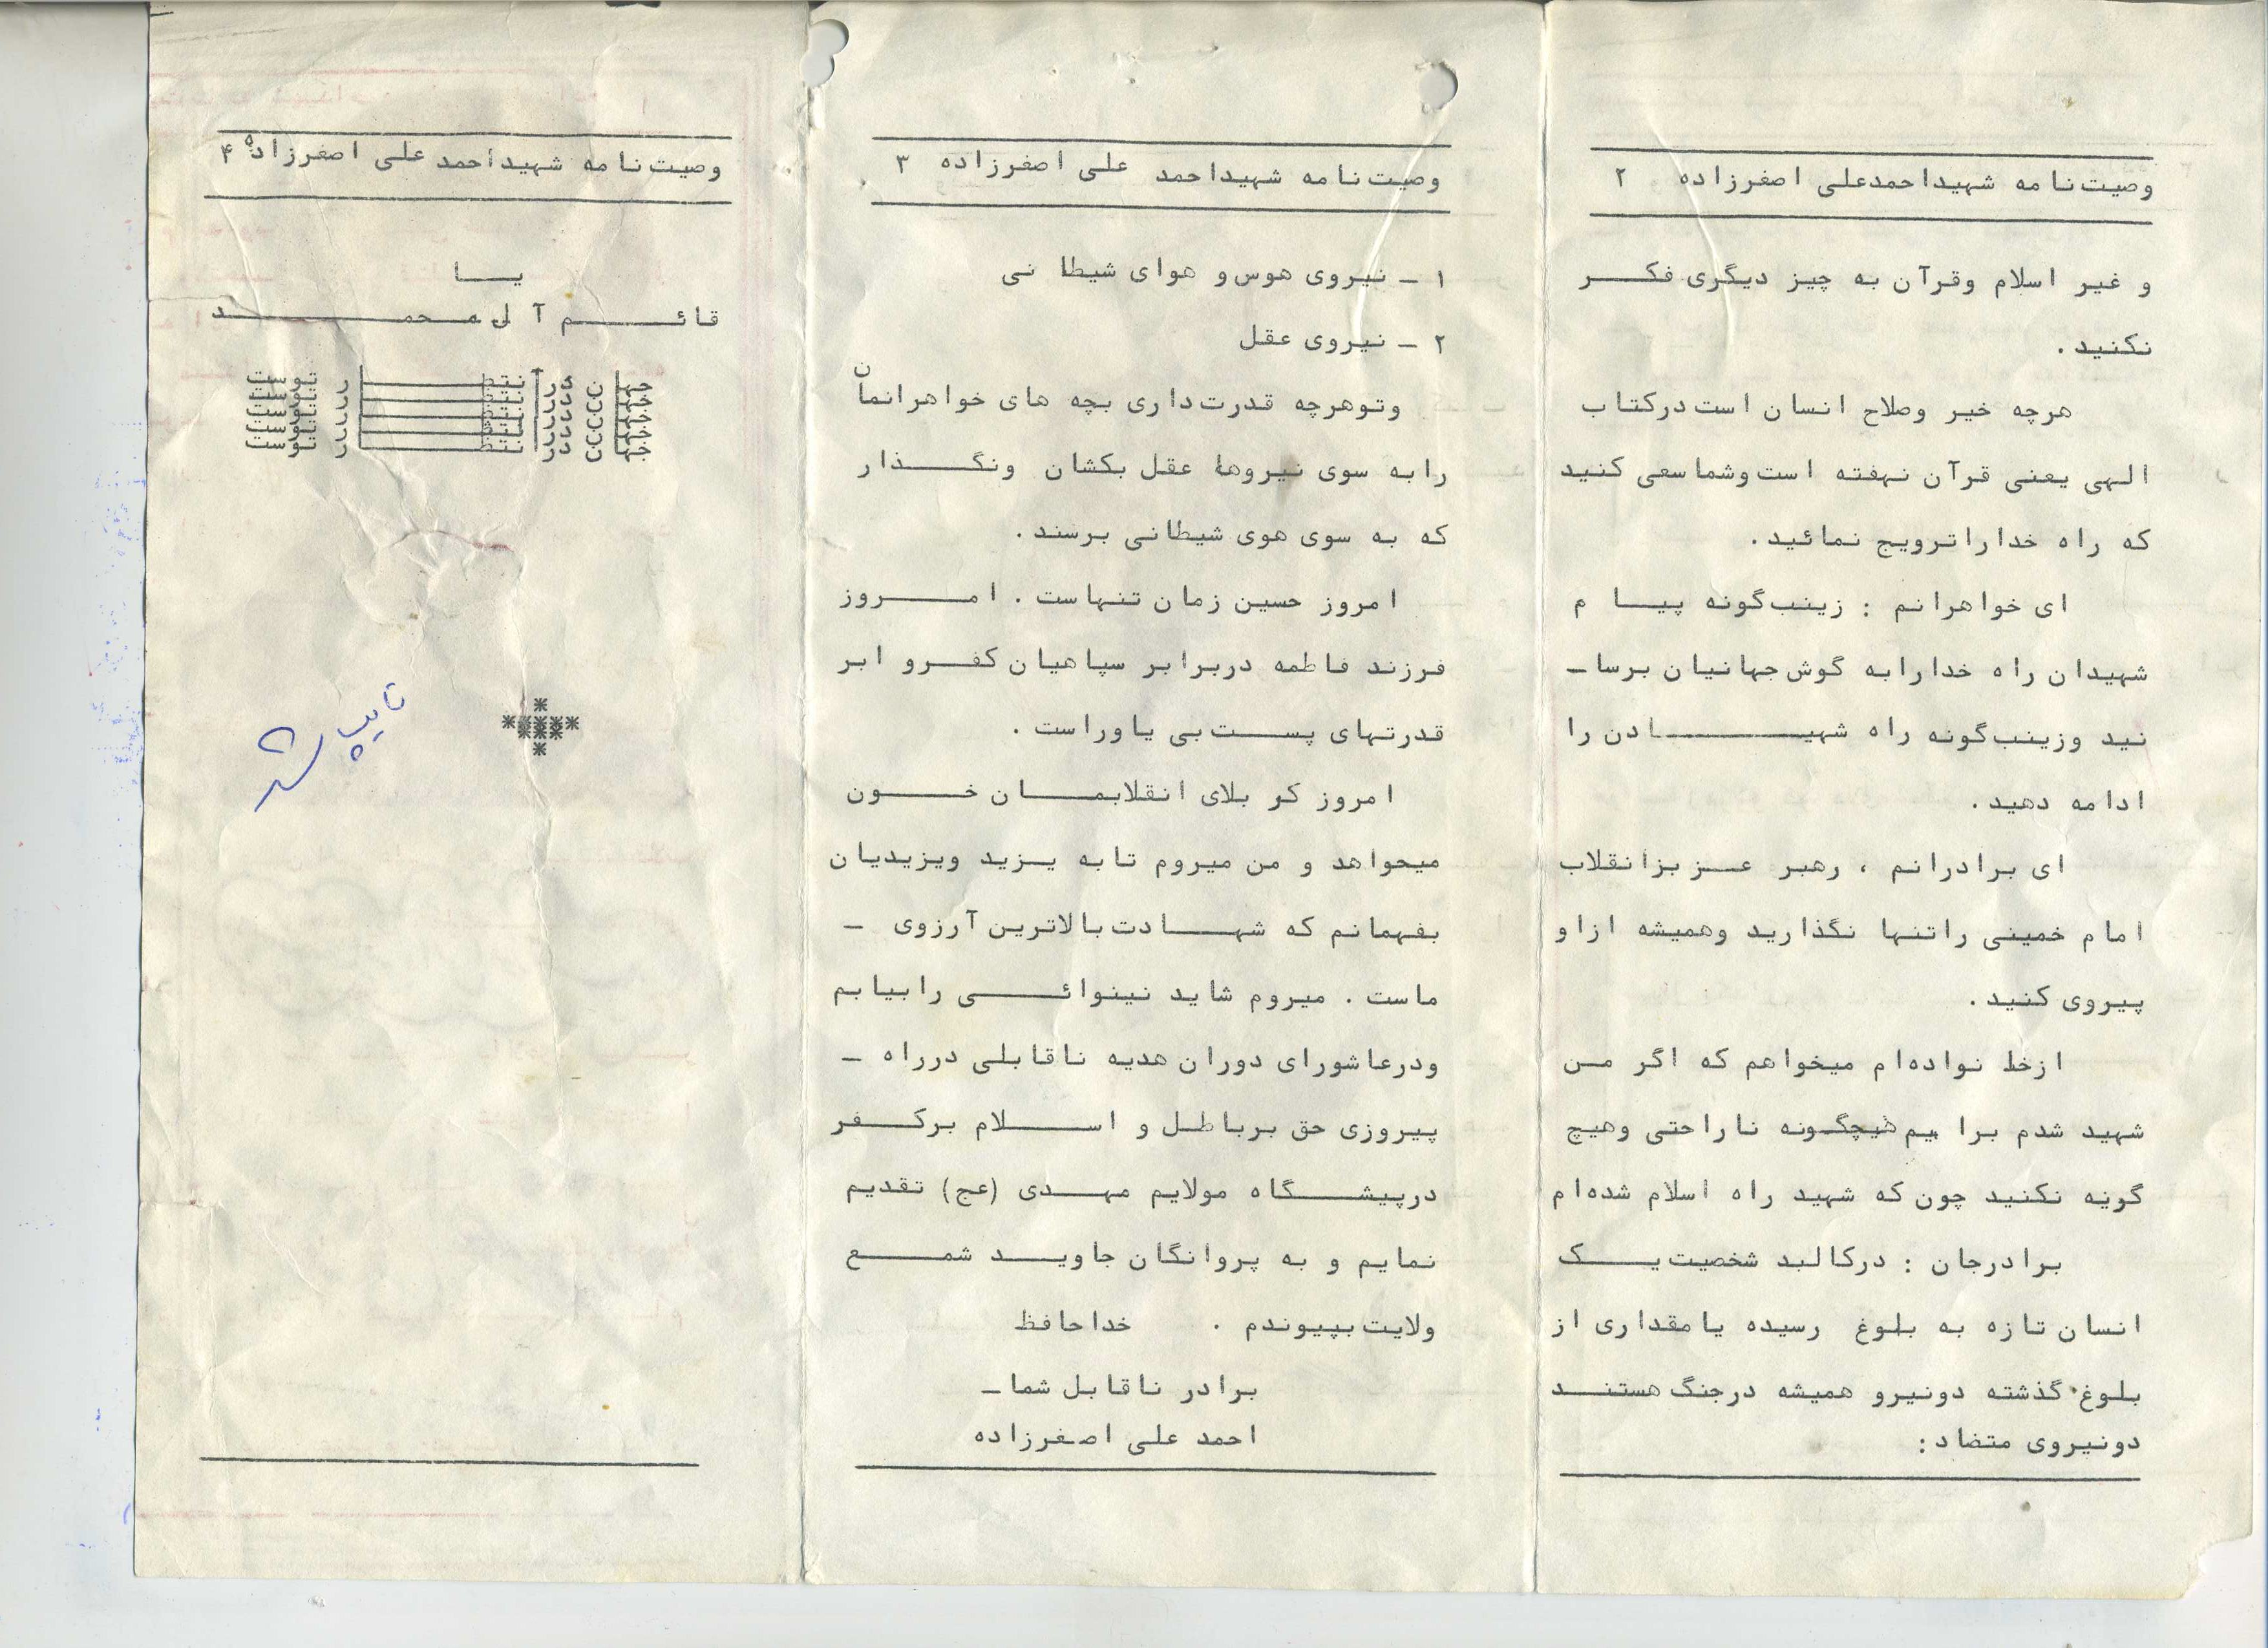 وصیت‌نامه شهیداحمدعلی اصغرزاده ۲
و غیر اسلام وقرآن به چیز دیگری فکر
نکنید .
هرچه خیر وصلاح انسان است درکتاب
الهی یعنی قرآن نهفته است وشما سعی کنید
که راه خدا راترویج نمائید .
ای خواهرانم : زینب‌گونه پیام
شهیدان راه خدارابه گوش جهانیان برسا-
نید وزینب‌گونه راه شهیدادن را
ادامه دهید .
ای برادرانم ، رهبر عزیزانقلاب
امام خمینی راتنها نگذارید وهمیشه ازاو
پیروی کنید .
ازخط نواده‌ام میخواهم که اگر من
شهید شدم برایم هیچگونه ناراحتی وهیچ
گونه نکنید چون که شهید راه اسلام شده‌ام
برادرجان : درکالبد شخصیت یک
انسان تازه به بلوغ رسیده یامقداری از
بلوغ گذشته دونیرو همیشه درجنگ هستند
دونیروی متضاد :
وصیت‌نامه شهیداحمد علی اصغرزاده ۳
۱ - نیروی هوس و هوای شیطانی
۲ - نیروی عقل
وتوهرچه قدرت‌داری بچه های خواهرانمان
رابه سوی نیروها عقل بکشان ونگذار
که به سوی هوی شیطانی برسند .
امروز حسین زمان تنهاست . امروز
فرزند فاطمه دربرابر سپاهیان کفرو ابر
قدرتهای پست بی یاوراست .
امروز کربلای انقلابمان خون
میخواهد و من میروم تابه یزید ویزیدیان
بفهمانم که شهادت بالاترین آرزوی -
ماست . میروم شاید نینوائی رابیابم
ودرعاشورای دوران هدیه ناقابلی درراه -
پیروزی حق برباطل و اسلام برکفر
درپیشگاه مولایم مهدی (عج) تقدیم
نمایم و به پروانگان جاوید شمع
ولایت بپیوندم . خداحافظ
برادر ناقابل شما-
احمد علی اصغرزاده
وصیت‌نامه شهیداحمد علی اصغرزاده ۴
یا
قائم آل محمد
جهان در انتظار توست
جهان در انتظار توست
جهان در انتظار توست
جهان در انتظار توست
جهان در انتظار توست
تایپ شد